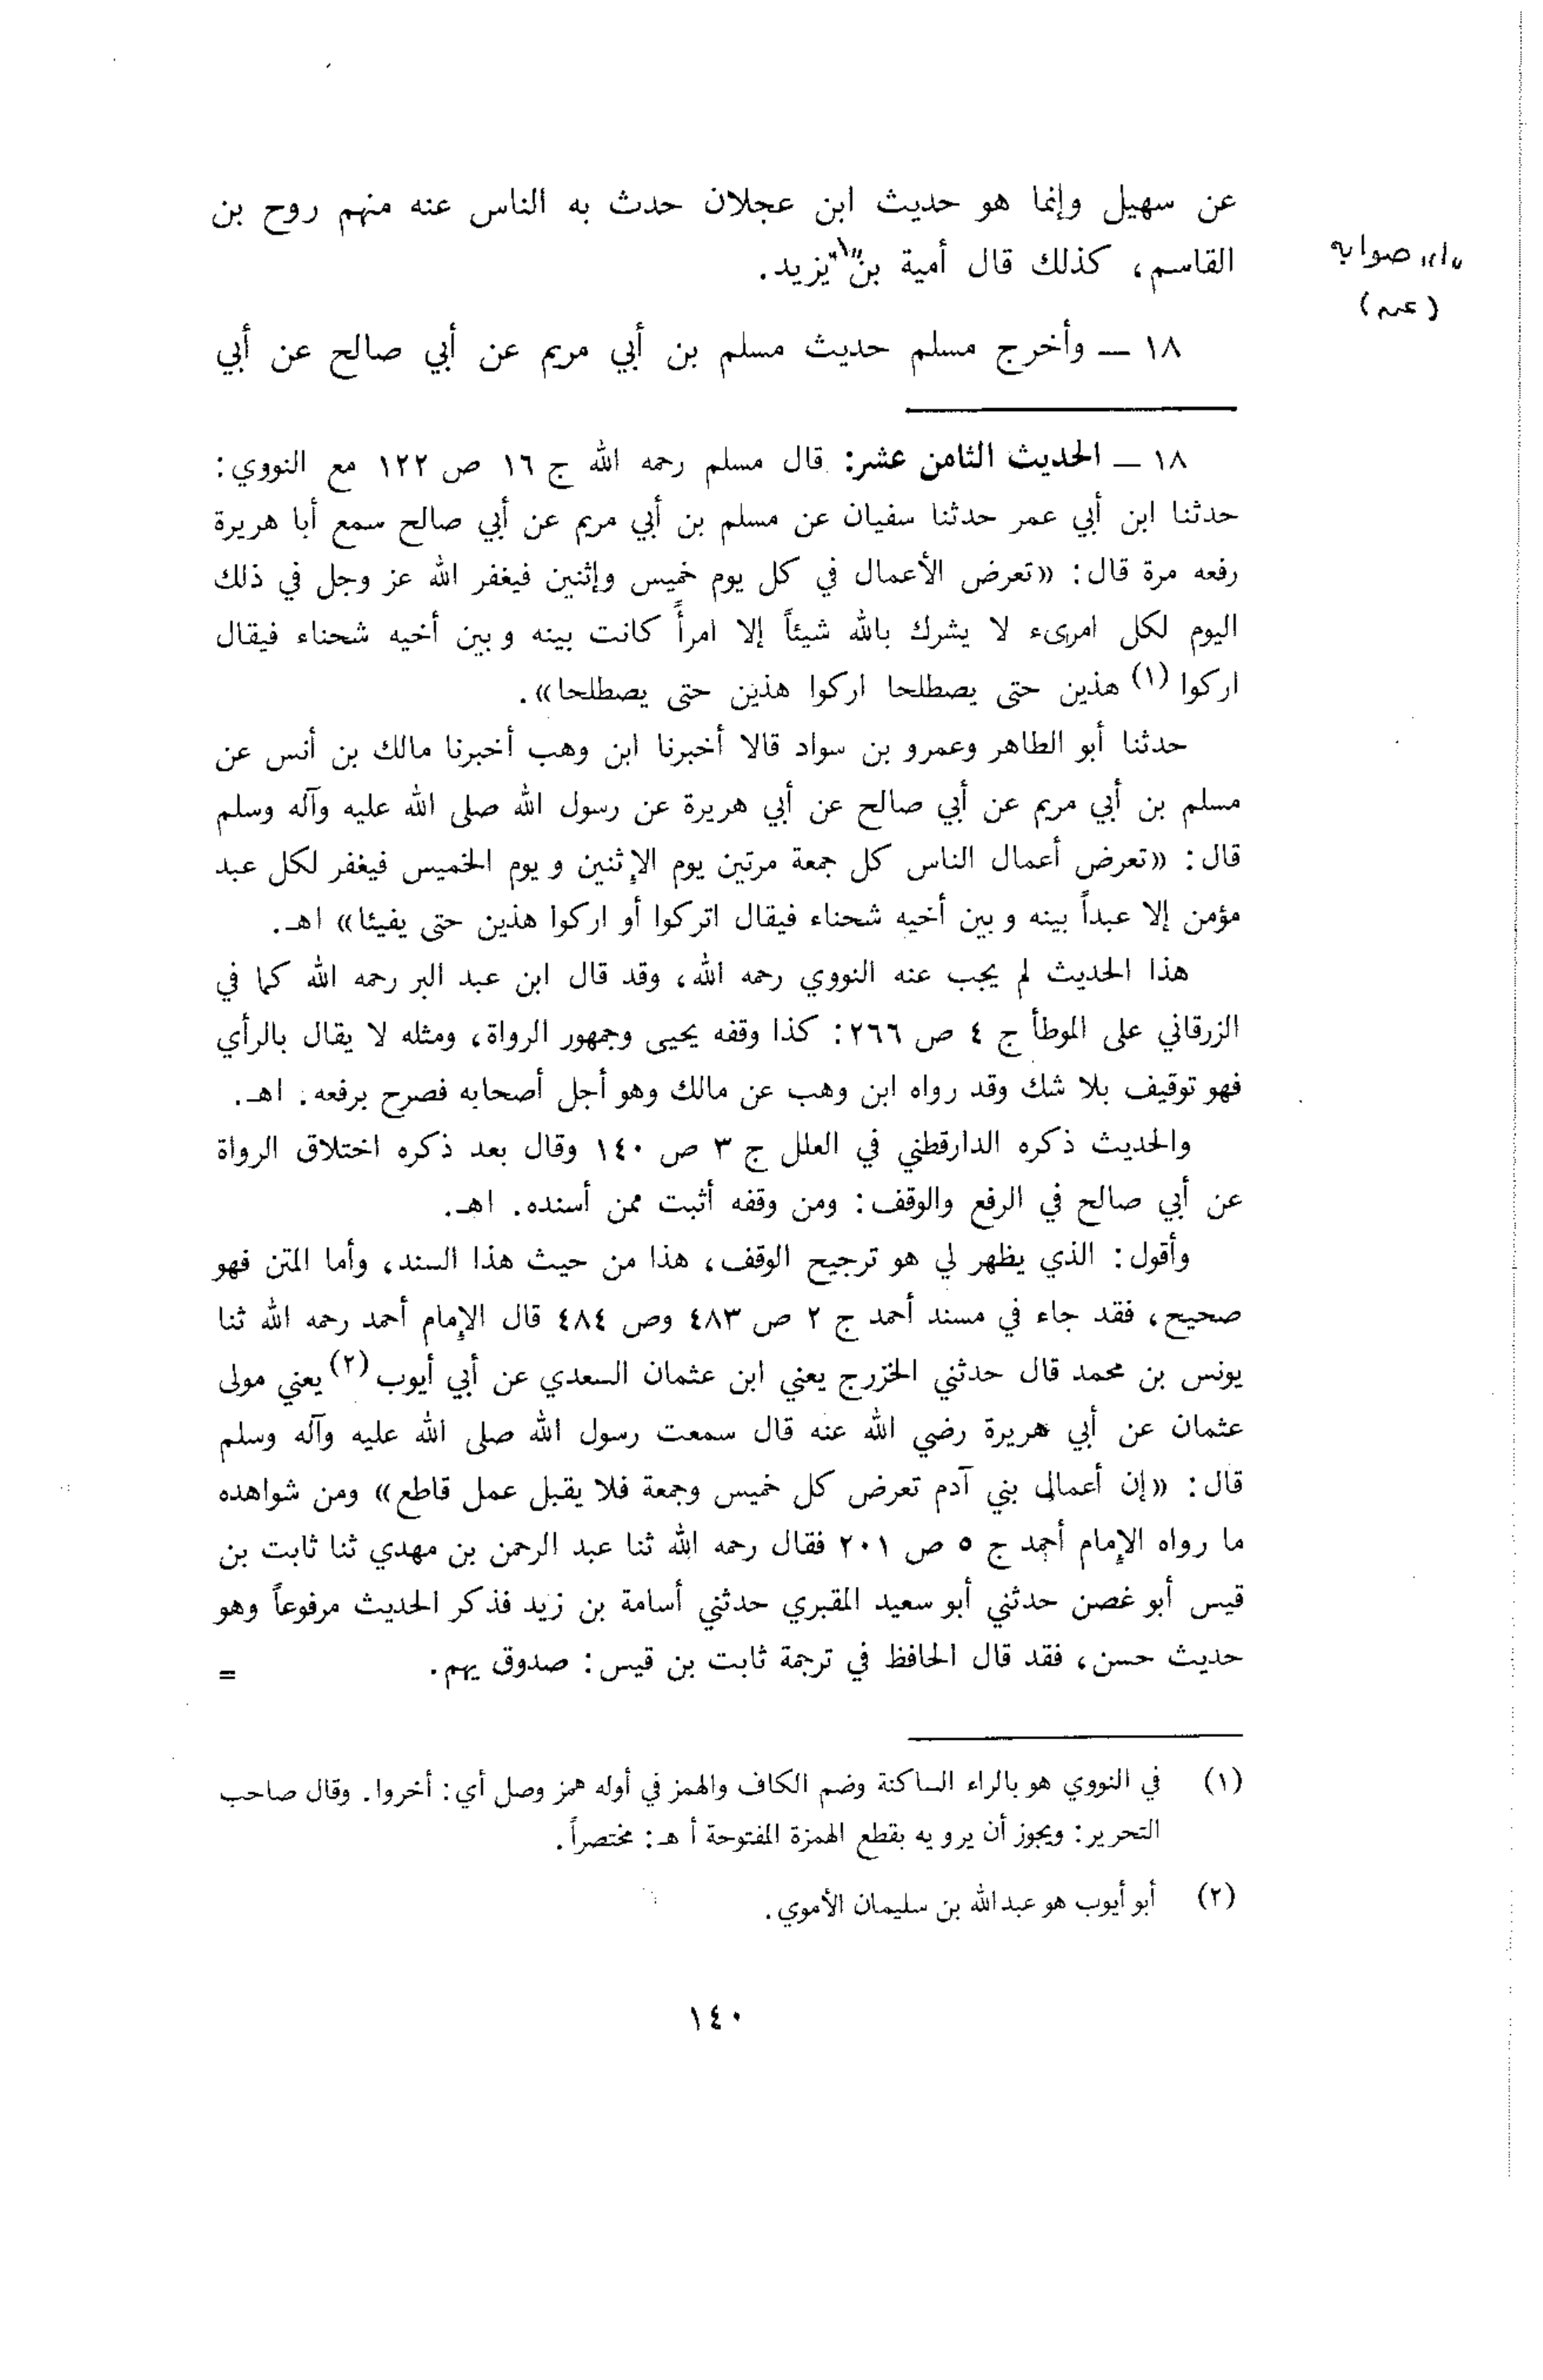 عن سهيل وإنما هو حديث ابن عجلان حدث به الناس عنه منهم روح بن
القاسم، كذلك قال أمية بن "١" يزيد.
"١" صوابه
(عن)
١٨ — وأخرج مسلم حديث مسلم بن أبي مريم عن أبي صالح عن أبي
١٨ — الحديث الثامن عشر: قال مسلم رحمه الله ج ١٦ ص ١٢٢ مع النووي:
حدثنا ابن أبي عمر حدثنا سفيان عن مسلم بن أبي مريم عن أبي صالح سمع أبا هريرة
رفعه مرة قال: «تعرض الأعمال في كل يوم خميس وإثنين فيغفر الله عز وجل في ذلك
اليوم لكل امرىء لا يشرك بالله شيئاً إلا امرأً كانت بينه وبين أخيه شحناء فيقال
اركوا (١) هذين حتى يصطلحا اركوا هذين حتى يصطلحا».
حدثنا أبو الطاهر وعمرو بن سواد قالا أخبرنا ابن وهب أخبرنا مالك بن أنس عن
مسلم بن أبي مريم عن أبي صالح عن أبي هريرة عن رسول الله صلى الله عليه وآله وسلم
قال: «تعرض أعمال الناس كل جمعة مرتين يوم الإثنين ويوم الخميس فيغفر لكل عبد
مؤمن إلا عبداً بينه وبين أخيه شحناء فيقال اتركوا أو اركوا هذين حتى يفيئا» اهـ.
هذا الحديث لم يجب عنه النووي رحمه الله، وقد قال ابن عبد البر رحمه الله كما في
الزرقاني على الموطأ ج ٤ ص ٢٦٦: كذا وقفه يحيى وجمهور الرواة، ومثله لا يقال بالرأي
فهو توقيف بلا شك وقد رواه ابن وهب عن مالك وهو أجل أصحابه فصرح برفعه. اهـ.
والحديث ذكره الدارقطني في العلل ج ٣ ص ١٤٠ وقال بعد ذكره اختلاق الرواة
عن أبي صالح في الرفع والوقف: ومن وقفه أثبت ممن أسنده. اهـ.
وأقول: الذي يظهر لي هو ترجيح الوقف، هذا من حيث هذا السند، وأما المتن فهو
صحيح، فقد جاء في مسند أحمد ج ٢ ص ٤٨٣ وص ٤٨٤ قال الإمام أحمد رحمه الله ثنا
يونس بن محمد قال حدثني الخزرج يعني ابن عثمان السعدي عن أبي أيوب (٢) يعني مولى
عثمان عن أبي هريرة رضي الله عنه قال سمعت رسول الله صلى الله عليه وآله وسلم
قال: «إن أعمال بني آدم تعرض كل خميس وجمعة فلا يقبل عمل قاطع» ومن شواهده
ما رواه الإمام أحمد ج ٥ ص ٢٠١ فقال رحمه الله ثنا عبد الرحمن بن مهدي ثنا ثابت بن
قيس أبو غصن حدثني أبو سعيد المقبري حدثني أسامة بن زيد فذكر الحديث مرفوعاً وهو
حديث حسن، فقد قال الحافظ في ترجمة ثابت بن قيس: صدوق يهم. =
(١) في النووي هو بالراء الساكنة وضم الكاف والهمز في أوله همز وصل أي: أخروا. وقال صاحب
التحرير: ويجوز أن يرويه بقطع الهمزة المفتوحة أ هـ: مختصراً.
(٢) أبو أيوب هو عبدالله بن سليمان الأموي.
١٤٠